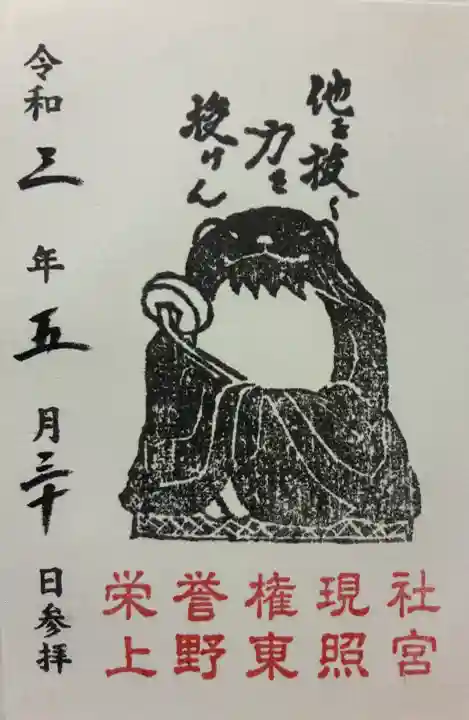 他を抜く
力を
授けん
令和三年五月三十日参拝
栄誉権現社
上野東照宮